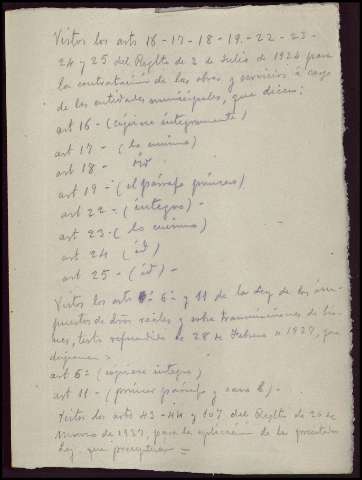 Vistos los arts 16-17-18-19-22-23-
24 y 25 del Reglto de 2 de Julio de 1924 para
la contratación de las obras y servicios a cargo
de las entidades municipales, que dicen:
art 16 - (cópiese íntegramente)
art 17 - (lo mismo)
art 18 - id
art 19 - (el párrafo primero)
art 22 - (íntegro) -
art 23 - (lo mismo)
art 24 (id)
art 25 - (id) -
Vistos los arts 6º y 11 de la Ley de los im-
puestos de dros reales y sobre transmisiones de bie-
nes, texto refundido de 28 de Febrero de 1927, que
art 6º (cópiese íntegro)
art 11 - (primer párrafo y caso 6) -
Vistos los arts 43-44 y 107 del Reglto de 26 de
Marzo de 1927, para la aplicación de la precitada
Ley que preceptúan =